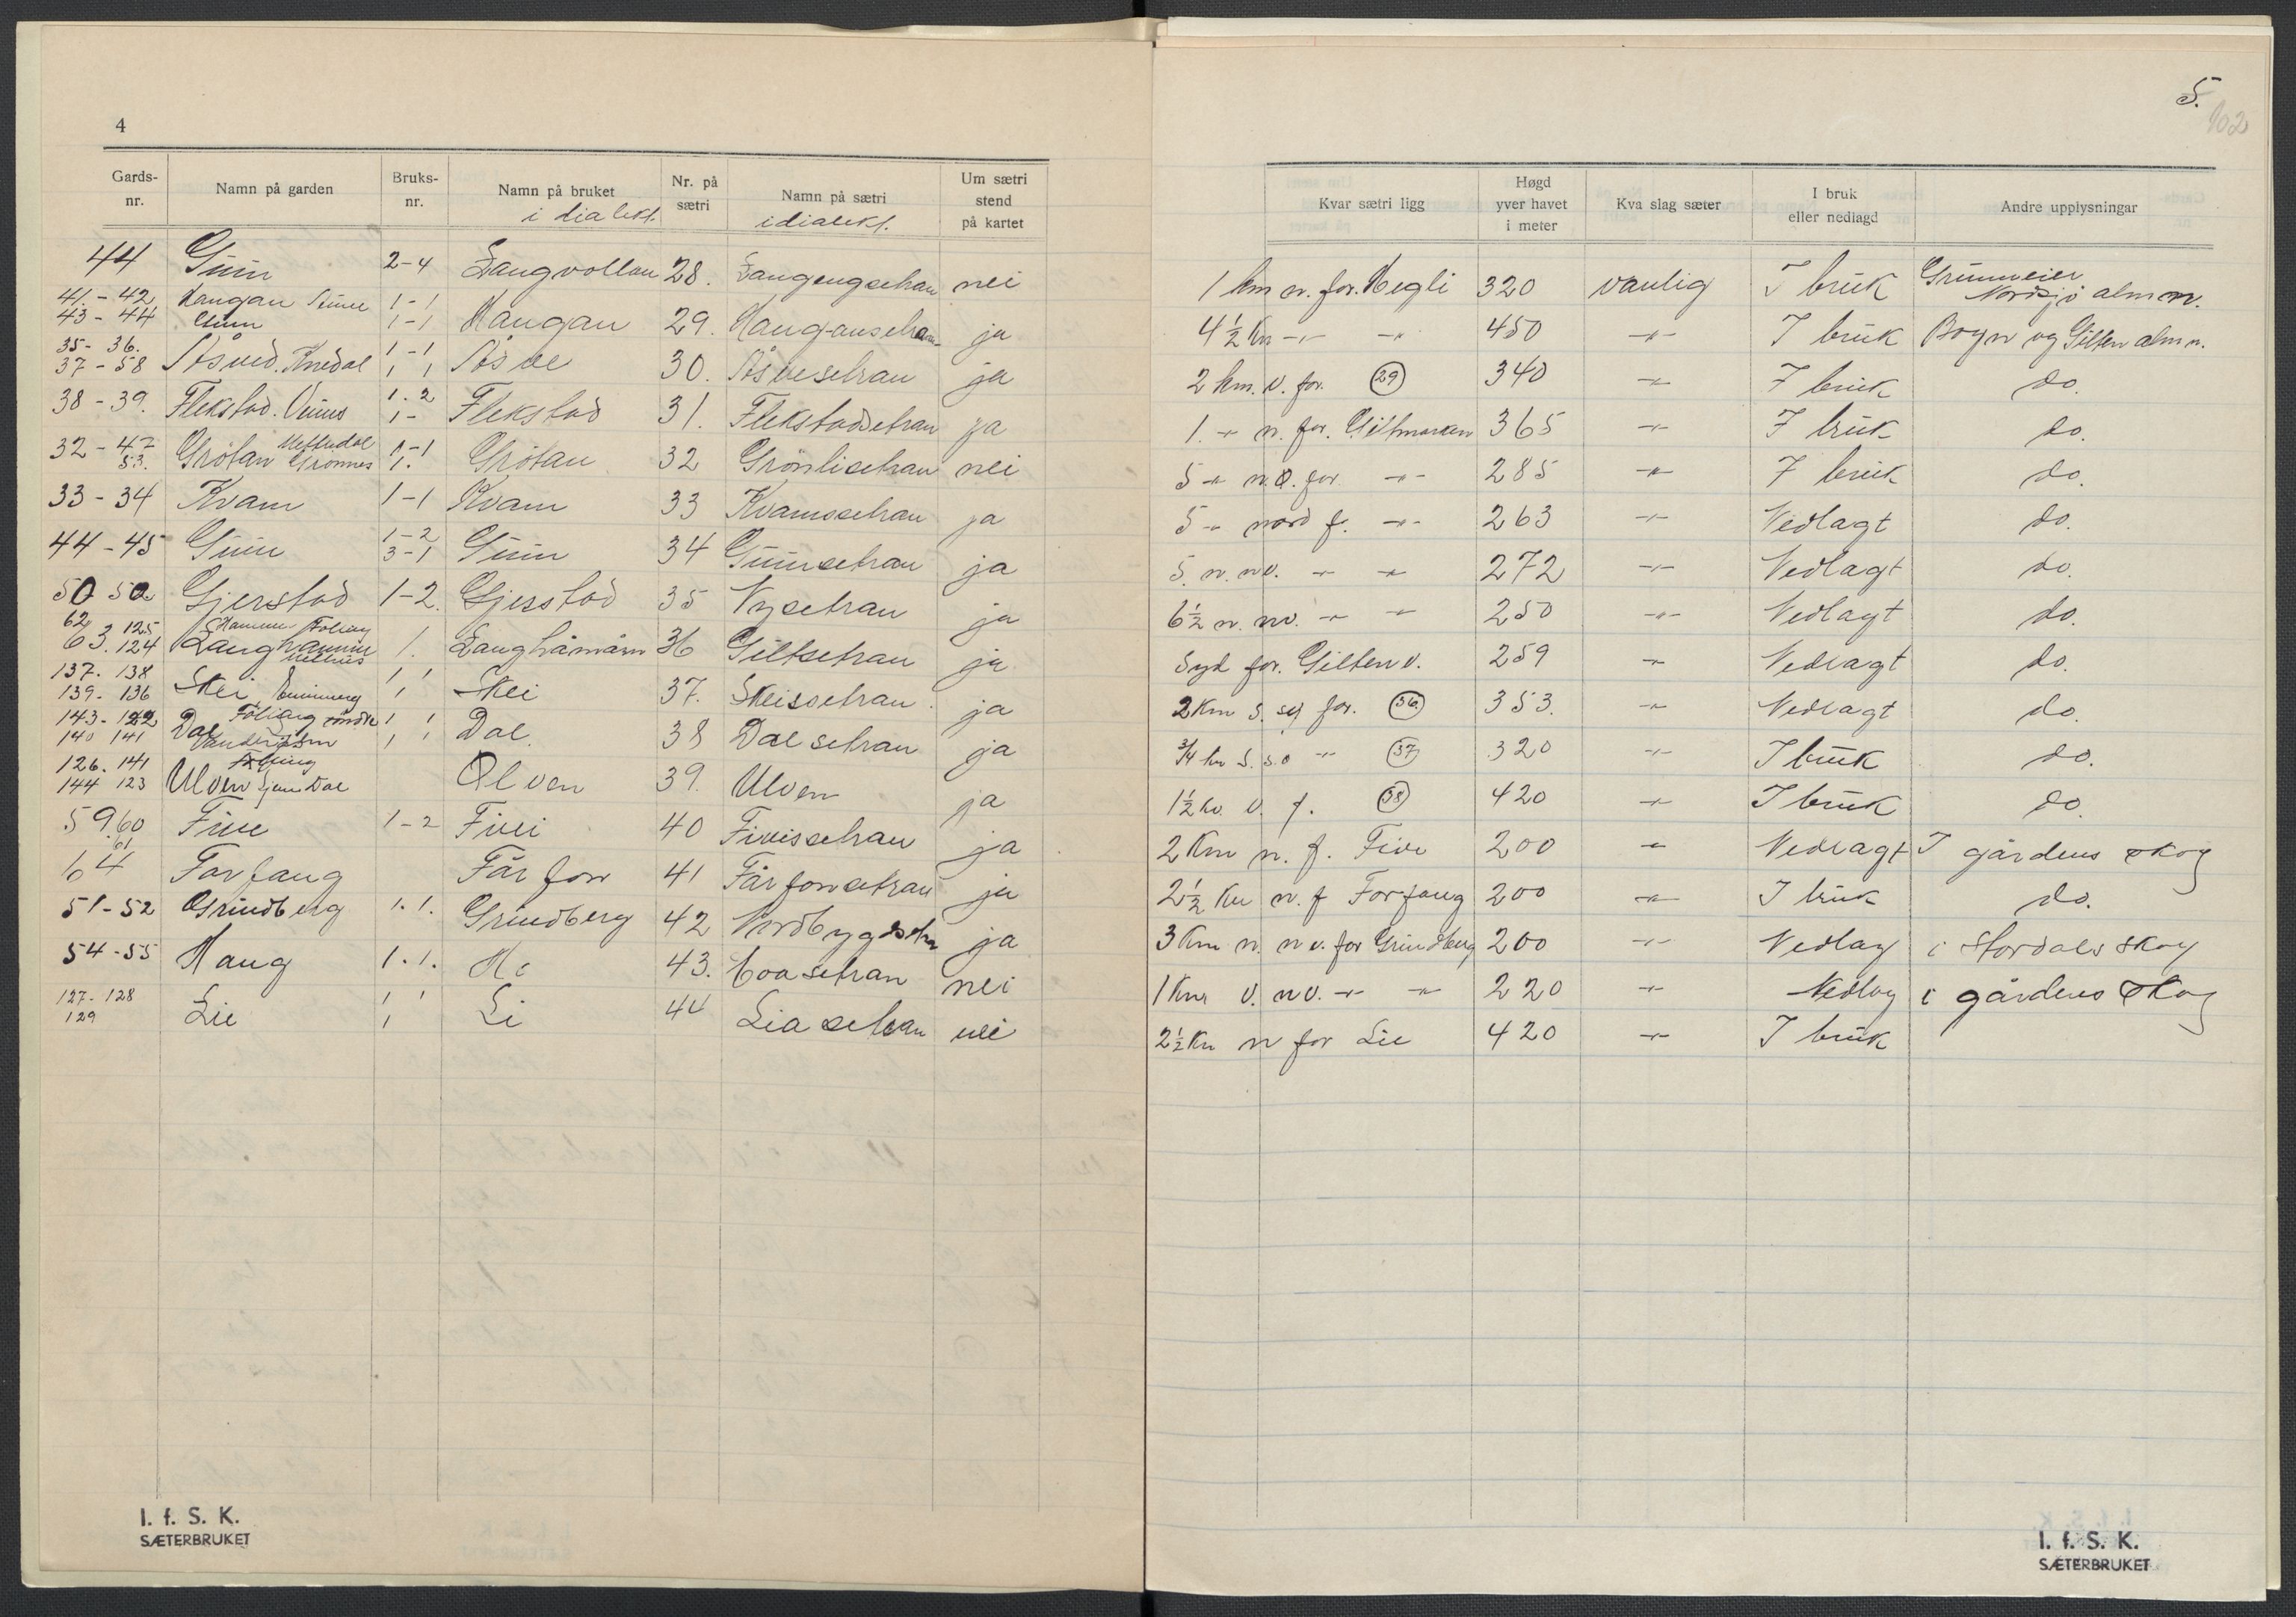 4
Gards-nr. Namn på garden Bruks-nr. Namn på bruket i dialekt. Nr. på sætri Namn på sætri i dialekt. Um sætri stend på kartet
44 Giun 2-4 Langvollan 28. Langengsetran nei
41.-42 43-44 Haugan 1-1 1-1 Haugan 29. Haugansetran ja
35-36. 37-58 Åsved. Knedal 1-1 1 1 Åsve 30. Åsvesetran ja
38-39. Flekstad. 1.2 1- Flekstad 31. Flekstadsetran ja
32-47 53. Grötan Grönnes 1-1 1. Grötan 32 Grönlisetran nei
33-34 Kvam 1-1 Kvam 33 Kvamssetran ja
44-45 Giun 1-2 3-1 Giun 34 Giunsetran ja
50 52 Gjerstad 1-2. Gjesstad 35 Nysetran ja
62 63. 125 124 Langhammer 1. Langhåmårn 36 Giltsetran ja
137. 138 139-136 Skei 1 1 1 Skei 37. Skeissetran. ja
143-122 140 141 Dal 1 1 1 1 Dal. 38 Dalsetran ja
126. 141 144 123 Ulven Dal Olven 39. Ulven ja
59.60 61 Five 1-2 Fivei 40 Fiveissetran ja
64 Forfang Fårfon 41 Fårfonsetran ja
51-52 Grindberg 1.1. Grindberg 42 ja
54-55 Haug 1.1. 43. nei
127-128 129 Lie 1 1 1 Li 44 Liasetran nei
I. f. S. K.
SÆTERBRUKET
5.
102
Kvar sætri ligg Høgd yver havet i meter Kva slag sæter I bruk eller nedlagd Andre upplysningar
1 km n. for. Hegli 320 vanlig I bruk Grunneier Nordsjö almn.
4½ Km -"- -"- 450 -"- I bruk Bogn og Gilten almn.
2 km. v. for. (29) 340 -"- I bruk do.
1. -"- n. for. 365 -"- I bruk do.
5 -"- n.ø. for -"- 285 -"- I bruk do.
5 -"- nord f. -"- 263 -"- Nedlagt do.
5. n. nv. -"- -"- 272 -"- Nedlagt do.
6½ n. nv. -"- -"- 250 -"- Nedlagt do.
Syd for. Gilten v. 259 -"- Nedlagt do.
2 Km s. for. (36) 353. -"- Nedlagt do.
¾ km S. s.o -"- (37) 320 -"- I bruk do.
1½ km. v. f. (38) 420 -"- I bruk do.
2 Km n. f. Five 200 -"- Nedlagt I gårdens skog
2½ Km n. f Forfang 200 -"- I bruk do.
3 Km n. nv. for Grindberg 200 -"- Nedlag i Stordals skog
1 Km v. nv. -"- -"- 220 -"- Nedlag i gårdens skog
2½ Km n for Lie 420 -"- I bruk
I. f. S. K.
SÆTERBRUKET